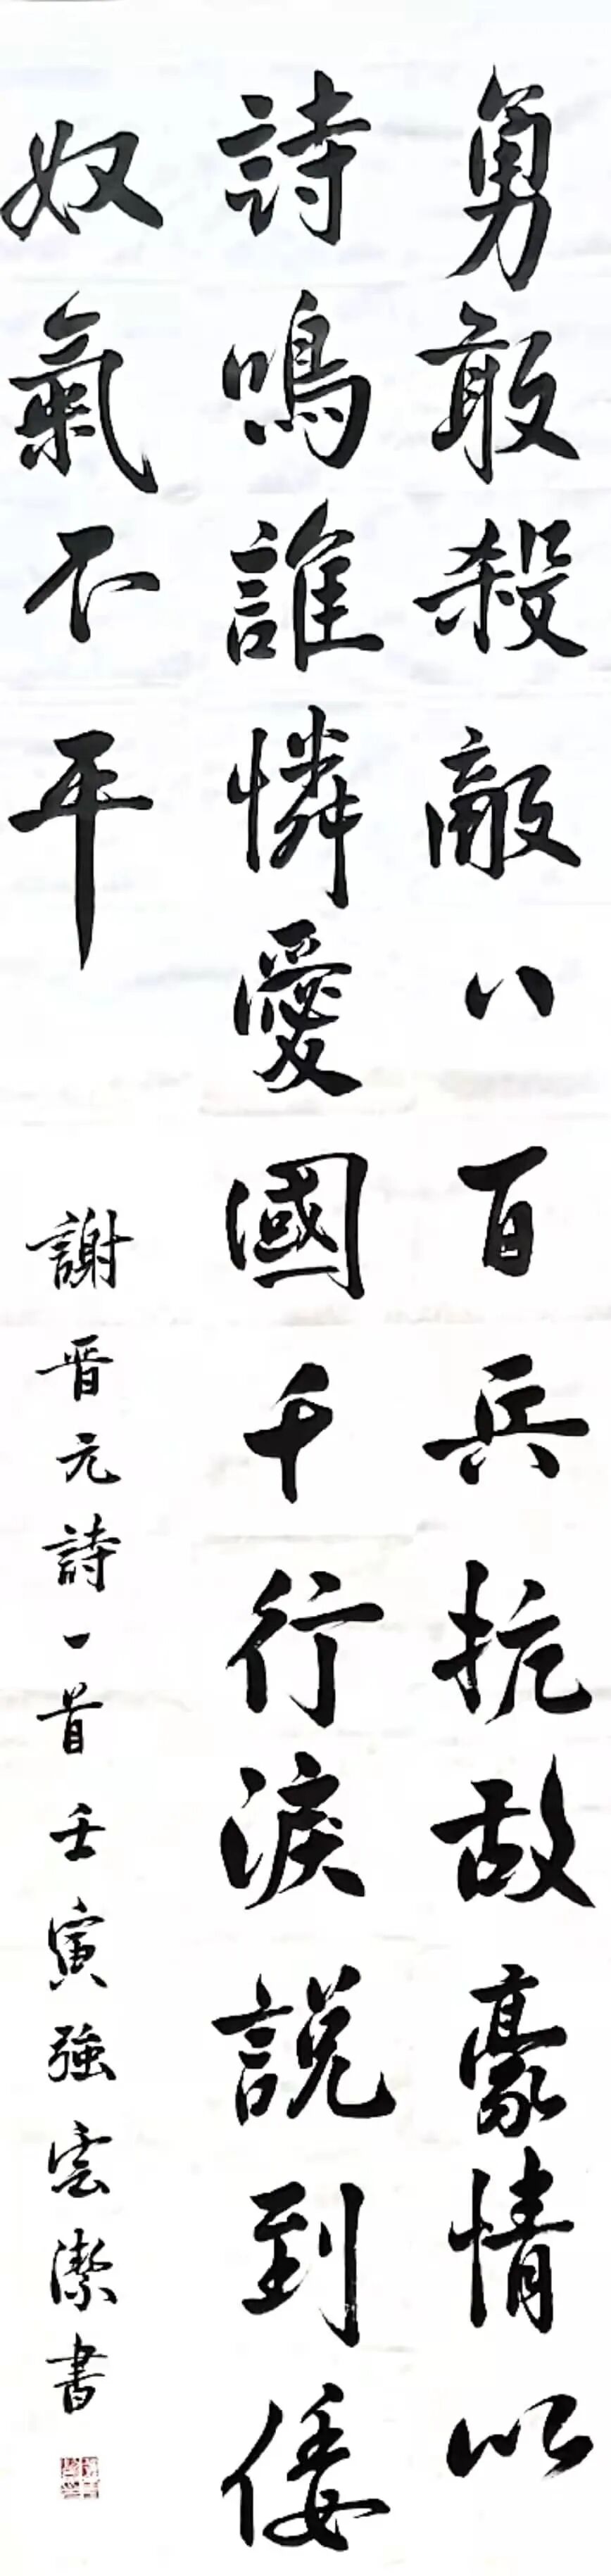 勇敢殺敵八百兵抗敵豪情以
詩鳴誰憐愛國千行淚說到倭
奴氣不平
謝晉元詩一首壬寅強雲潔書